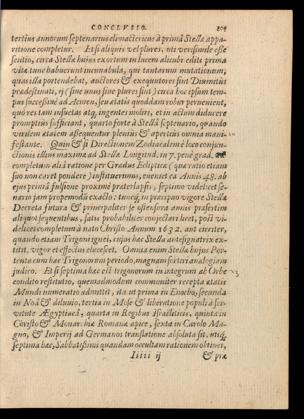 CONCLVSIO.
tertius annorum septenarius climactericus à primâ Stellæ appa-
ritione completur. Et si aliquis vel plures, vti verisimile est
scutio, circa Stellæ huius exortum in lucem aliculi edite prima
vitæ tunc habuerunt incunabula, qui tantarum mutationum,
quas illa portendebat, auctores & exequutores sint Diuinitùs
prædestinati, ij (siue unus siue plures sint) circa hoc ipsum tem-
pus successiue ad Acmen, seu ætatis quoddam robur pervenient,
quò res tam insuetas atq; ingentes moliri, et in actum deducere
promptiùs sufficiant, quarto forte à Stellâ septenario, quando
virilem ætatem assequentur pleniùs & apertiùs omnia mani-
festante. Quin & si Directionem Zodiacalem à loco conjun-
ctionis illius maximæ ad Stellæ Longitud. in 7. penè grad.
completam aliâ ratione per Gradus Eclipticæ (quæ ratio etiam
suo non caret pondere) instituerimus, eveniet ea Annis 48. ab
ejus primâ fulsione proximè præterlapsis, septimo videlicet se-
nario jam propemodùm exacto: Linirq; in præcipuo vigore Stellæ
Decreta futura & principaliter se effusura annis præsertim
aliquot sequentibus, satis probabiliter conjectari licet, post vi-
delicet completum à nato Christo Annum 1632. aut circiter,
quando etiam Trigoni ignei, cujus hæc Stella antesignatrix ex-
titit, vigor et effectus elucescet. Omnia enim Stellæ hujus Por-
tenta cum hæc Trigonorum periodo, magnam sortiri analogiam
judico. Et si septima hæc est trigonorum in integrum ab Orbe
condito restitutio, quemadmodum communiter recepta ætatis
Mundi numeratio admittit, ita ut prima in Enocho, secunda
in Noâ & diluuio, tertia in Mose & liberatione populi à ser-
vitute Ægyptiacâ, quarta in Regibus Israëliticis, quinta in
Christo & Monarchiæ Romanæ apice, sexta in Carolo Ma-
gno, & Imperij ad Germanos translatione absoluta sit, utiq;
septima hæc, Sabbatismi quandam occultam rationem obtinet,
Iiiii ij
& præ